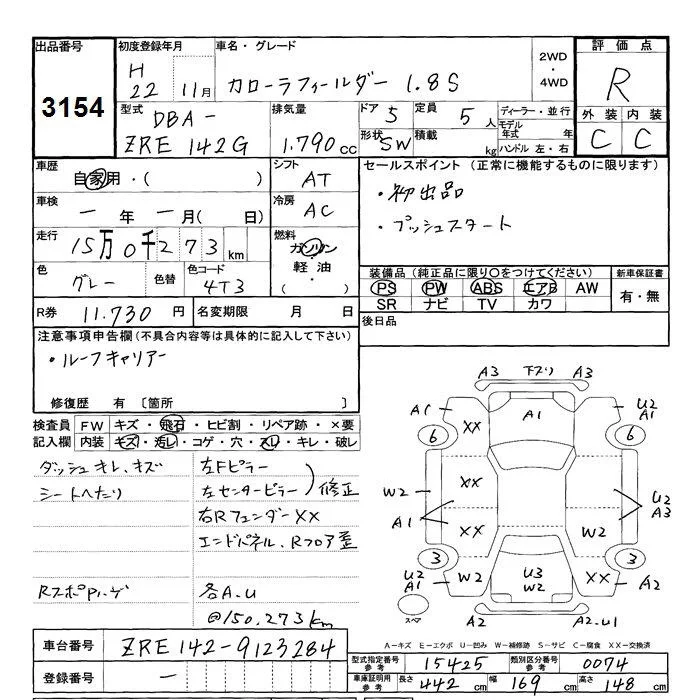 出品番号
3154
初度登録年月
H
22 11月
車名・グレード
カローラフィールダー 1.8S
2WD
・
4WD
評価点
R
外装 内装
C C
型式
DBA-
ZRE142G
排気量
1.790cc
ドア 5
形状 SW
定員 5人
積載 kg
ディーラー・並行
モデル年式 年
ハンドル 左・右
車歴
自家用・( )
シフト
AT
車検
一年一月(日)
冷房
AC
走行
15万0千273km
燃料
ガソリン
・
軽油
( )
色
グレー
色替
色コード
4T3
セールスポイント(正常に機能するものに限ります)
・初出品
・プッシュスタート
装備品(純正品に限り○をつけてください)
PS PW ABS エアB AW
SR ナビ TV カワ
新車保証書
有・無
R券 11.730円
名変期限 月 日
後日品
注意事項申告欄(不具合内容等は具体的に記入して下さい)
・ルーフキャリアー
修復歴 有 〔箇所 〕
検査員 記入欄
FW キズ・飛石・ヒビ割・リペア跡・×要
内装 キズ・汚レ・コゲ・穴・スレ・キレ・破レ
ダッシュキレ、キズ
シートへたり
左Fピラー
左センターピラー
修正
右RフェンダーXX
エンドパネル、Rフロア歪
各A.U
@150.273km
A3 下スリ A3
A1 U2
A1
6 XX A1 6
W2 XX U2
A3
A1 XX W2
3 3
U2
A1
W2 U3
W2 XX A2
スペア
A2 A2.U1
A-キズ E-エクボ U-凹み W-補修跡 S-サビ C-腐食 XX-交換済
車台番号 ZRE142-9123284
登録番号 一
型式指定番号参考 15425
類別区分番号参考 0074
車庫証明用参考 長さ 442cm 幅 169cm 高さ 148cm